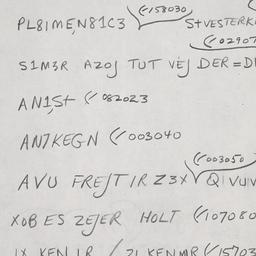 (158030
PL8IMEN81C3 S+VESTERK
(02907
S1M3R AZOJ TUT VEJ DER=D
AN1S+ (082023
AN7KEGN (003040
(003050
AVU FREJT IR Z3X QIVUIV
XOB ES ZEJER HOLT (107080
IX KEN IR / ZI KENMR (15703